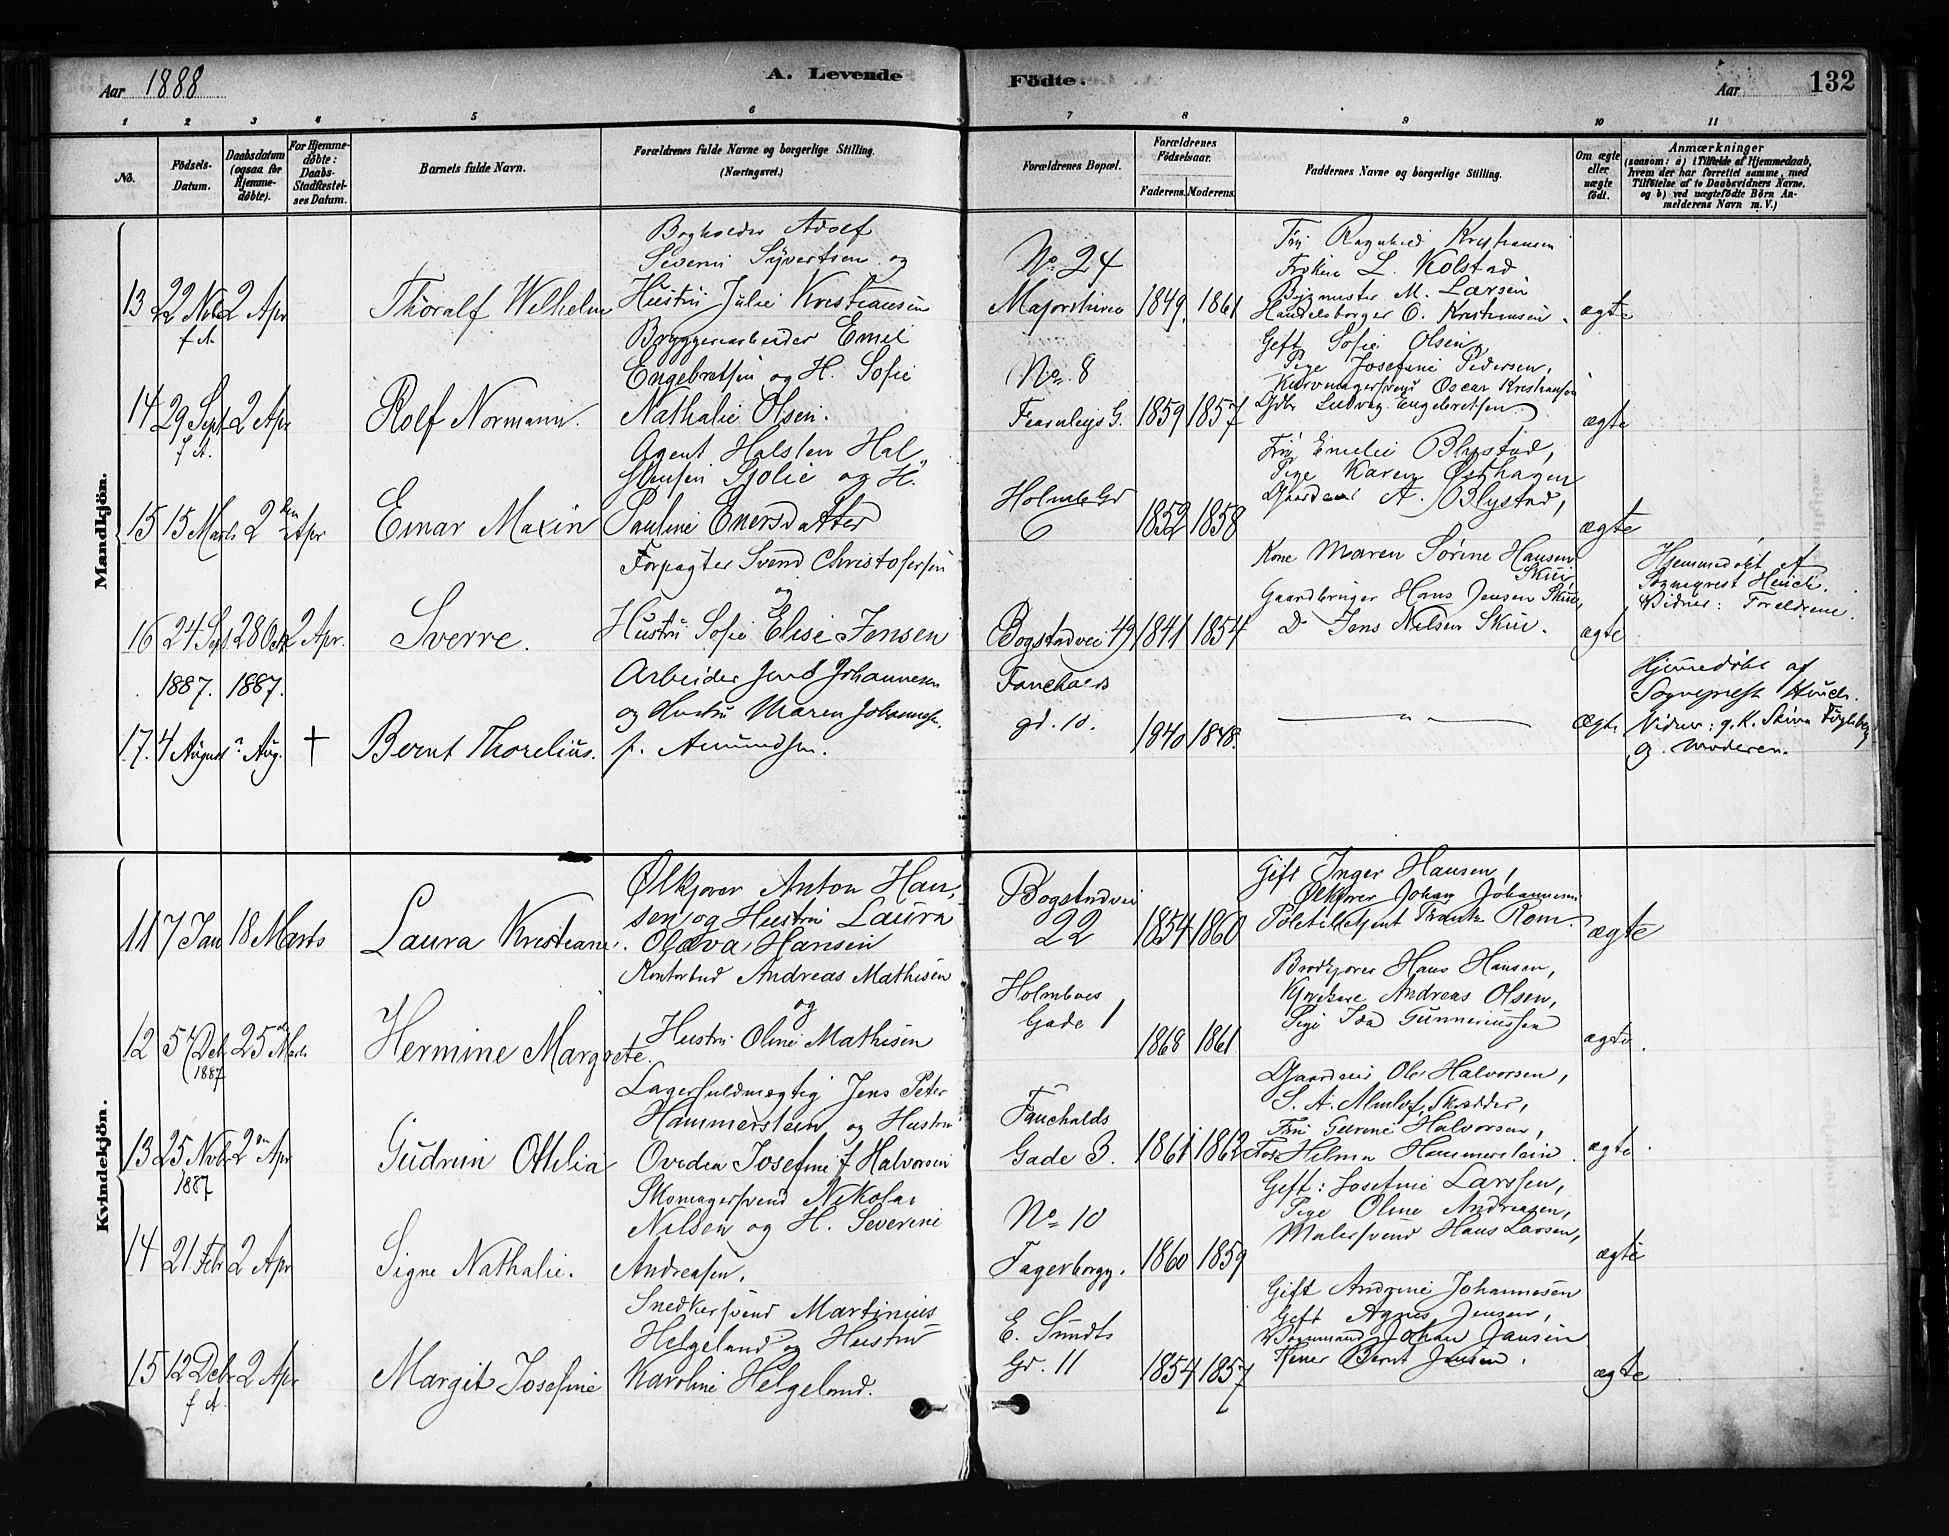 Aar 1888
A. Levende
Födte.
Aar
132
1 2 3 4 5 6 7 8 9 10 11
No.
Födsels-
Datum.
Daabsdatum
(ogsaa for
Hjemme-
döbte).
For Hjemme-
döbte:
Daabs-
Stadfæstel-
ses Datum.
Barnets fulde Navn.
Forældrenes fulde Navne og borgerlige Stilling.
(Næringsvei.)
Forældrenes Bopæl.
Forældrenes
Födselsaar.
Faderens. Moderens.
Faddernes Navne og borgerlige Stilling.
Om ægte
eller
uægte
födt.
Anmærkninger
(saasom: a) i Tilfælde af Hjemmedaab,
hvem der har forrettet samme, med
Tilföielse af to Daabsvidners Navne,
og b) ved uægtefödte Börn An-
melderens Navn m. V.)
Mandkjön.
13 22 Nvbr 2 Apr
f A.
Thoralf Wilhelm
Bogholder Adolf
Severin Syvertsen og
Hustru Julie Kristiansen
No. 24
Majorstuvei
1849. 1861
Fru Ragnhild Kristiansen
Frøken L. Kolstad
Bygmester M. Larsen
Handelsborger O. Kristiansen
ægte
14 29 Sept 2 Apr
f A.
Rolf Normann.
Bryggeriarbeider Emil
Engebretsen og H. Sofie
Nathalie Olsen.
No. 8
Fearnleys G.
1859 1857
Gift Sofie Olsen,
Pige Josefine Pedersen,
Kurvmagersvend Oscar Kristiansen
Gdbr Ludvig Engebretsen.
ægte
15 15 Marts 2 den Apr
Einar Maxin
Agent Halsten Hal
stensen Sjolie og H.
Pauline Enersdatter
Holmbo Gd
6
1852 1858
Fru Emelie Blystad,
Pige Karen Østhagen
Gaardeier A. Blystad,
ægte
16 24 Sept. 28 Octb 2 Apr.
1887. 1887.
Sverre.
Forpagter Svend Christofersen
og
Hustru Sofie Elise Jensen
Bogstadvei 49
1841 1854
Kone Maren Sörine Hansen
Skui,
Gaardbruger Hans Jensen Skui,
D Jens Nilsen Skui.
ægte
Hjemmedøbt af
Sogneprest Heuch.
Vidner: Forældrene
17. 4 August ? Aug. †
Bernt Thorelius.
Arbeider Jens Johannesen
og Hustru Maren Johannesen
f. Amundsen.
Fauchalds
gd. 10.
1840 1848.
— " —
Ægte
Hjemmedøbt af
Sogneprest Heuch.
Vidner: g.K. Stina Fugleberg
og Moderen.
Kvindekjön.
11 7 Jan 18 Marts
Laura Kristiane.
Ølkjører Anton Han,
sen og Hustru Laura
Olava Hansen
Bogstadvei
22
1854 1860
Gift Inger Hansen,
Ølkjører Johan Johannesen
Politibetjent Frantz Rom.
ægte
12 5 Deb 25 de Marts
1887
Hermine Margrete.
Kontorbud Andreas Mathisen
og
Hustru Oline Mathisen
Holmboes
Gade 1
1868 1861
Brødkjører Hans Hansen,
Andreas Olsen,
Pige Ida Gunneriussen
ægte.
13 25 Nvbr 2 den Apr
1887
Gudrun Othilia
Lagerfuldmægtig Jens Peter
Hammerstein og Hustru
Ovedia Josefine f Halvorsen
Fauchalds
Gade 3.
1861 1862
Gaardeier Ole Halvorsen,
S. A. Almlöf, Skrædder,
Fru Gurine Halvorsen,
Hilma Hammerstein.
ægte.
14 21 Febr 2 Apr
Signe Nathalie.
Skomagersvend Nikolai
Nilsen og H. Severine
Andreasen.
No. 10
Fagerborgg.
1860 1859
Gift: Josefine Larssen,
Pige Oline Andreasen,
Malersvend Hans Larsen,
ægte
15 12 Debr 2 Apr
f A.
Margit Josefine
Snedkersvend Martinius
Helgeland og Hustru
Karoline Helgeland.
E. Sundts
Gd. 11
1854 1857
Gift Andrine Johannesen
Gift Agnes Jensen,
Vognmand Johan Jansen
Bernt Jansen.
ægte